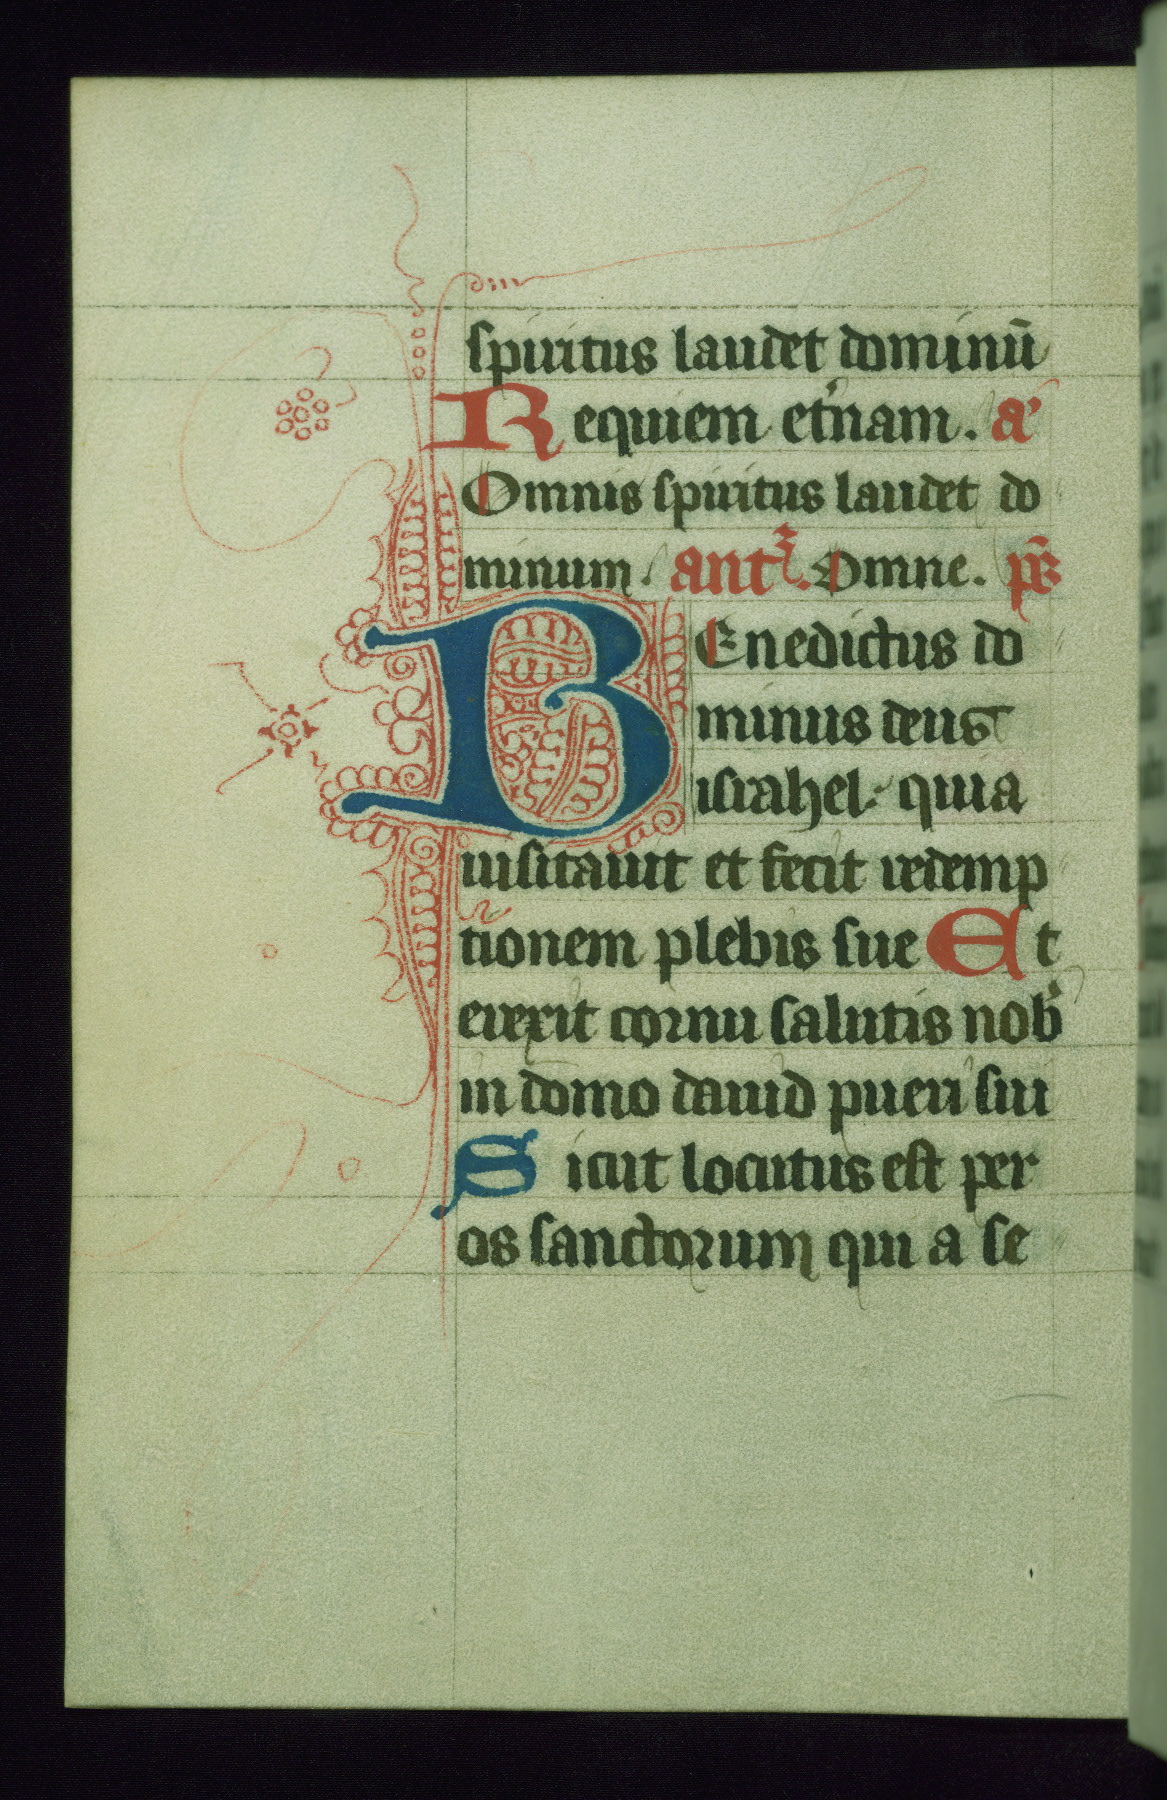 spiritus laudet dominū
Requiem et'nam. a'
Omnis spiritus laudet do
minum. ant. Omne. ps
BEnedictus do
minus deus
israhel. quia
uisitauit et fecit redemp
tionem plebis sue Et
erexit cornu salutis nob'
in domo dauid pueri sui
Sicut locutus est per
os sanctorum qui a se